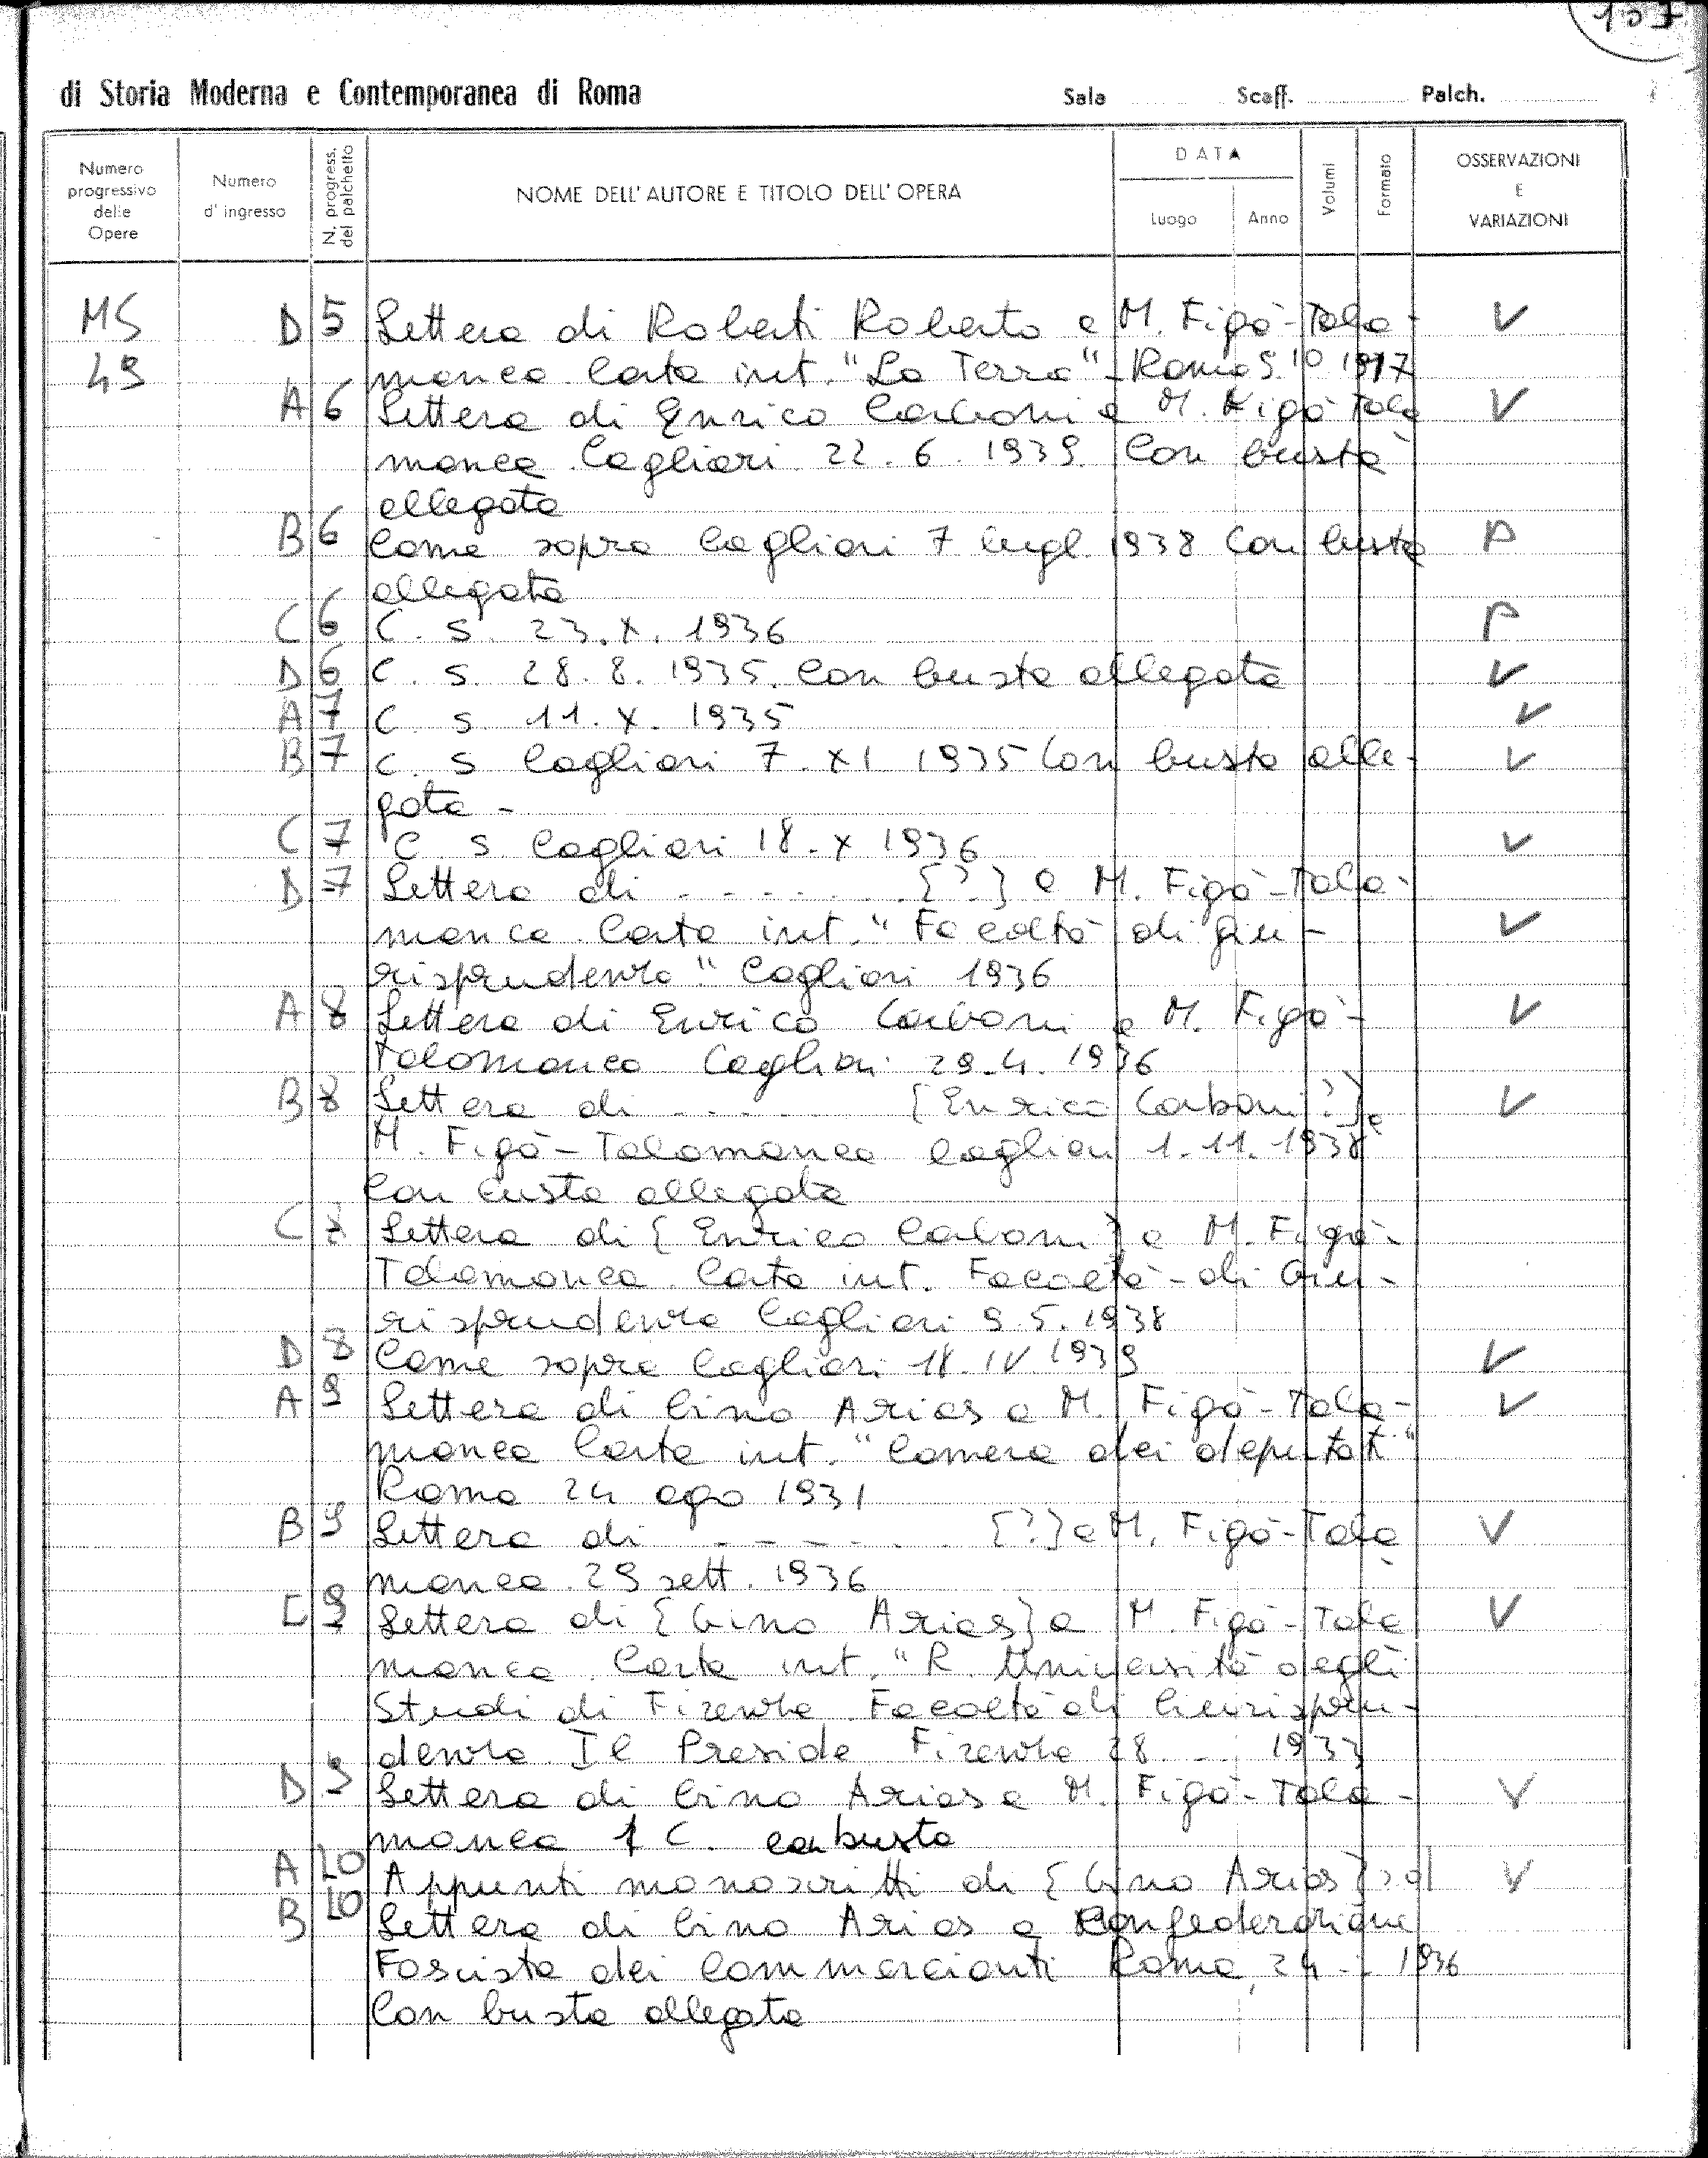 107
di Storia Moderna e Contemporanea di Roma Sala Scaff. Palch.
Numero progressivo delle Opere
Numero d'ingresso
N. progress. del palchetto
NOME DELL'AUTORE E TITOLO DELL'OPERA
DATA
Luogo Anno
Volumi
Formato
OSSERVAZIONI E VARIAZIONI
MS D 5 Lettera di Roberti Roberto a M. Figà-Tala- V
49 manca Carta int. "La Terra" - Roma 5.10 1917
A 6 Lettera di Enrico Carboni a M. Figà Tala V
manca Cagliari 22.6.1939. Con busta
allegata
B 6 Come sopra Cagliari 7 lugl. 1938 Con busta P
allegata
C 6 C. S. 23.X.1936 P
D 6 C. S. 28.8.1935. Con busta allegata V
A 7 C S 11.X.1935 V
B 7 C. S Cagliari 7.XI 1935 Con busta alle- V
gata -
C 7 C S. Cagliari 18.X 1936 V
D 7 Lettera di ...... [?] a M. Figà-Tala-
manca Carta int. "Facoltà di giu- V
risprudenza" Cagliari 1936
A 8 Lettera di Enrico Carboni a M. Figà- V
Talamanca Cagliari 29.4.1936
B 8 Lettera di .... [Enrico Carboni?] a V
M. Figà-Talamanca Cagliari 1.11.1938
Con busta allegata
C 8 Lettera di [Enrico Carboni] a M. Figà-
Talamanca Carta int. Facoltà di Giu-
risprudenza Cagliari 9.5.1938
D 8 Come sopra Cagliari 18.IV 1939 V
A 9 Lettera di Gino Arias a M. Figà-Tala- V
manca Carta int. "Camera dei deputati"
Roma 24 ago 1931
B 9 Lettera di ..... [?] a M. Figà-Tala V
manca 29 sett. 1936
C 9 Lettera di [Gino Arias] a M. Figà-Tala V
manca Carta int. "R. Università degli
Studi di Firenze Facoltà di Giurispru-
denza Il Preside Firenze 28. - 1933
D 9 Lettera di Gino Arias a M. Figà-Tala- V
manca 1 C. con busta
A 10 Appunti manoscritti di [Gino Arias] V
B 10 Lettera di Gino Arias a Confederazione
Fascista dei Commercianti Roma, 24 - 1936
Con busta allegata